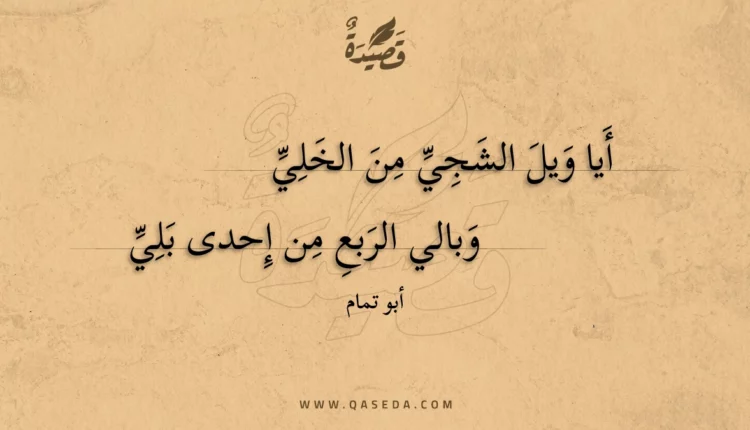 قَصِيدَةٌ
أَيا وَيلَ الشَجِيِّ مِنَ الخَلِيِّ
وَبالي الرَبعِ مِن إِحدى بَلِيِّ
أبو تمام
WWW.QASEDA.COM